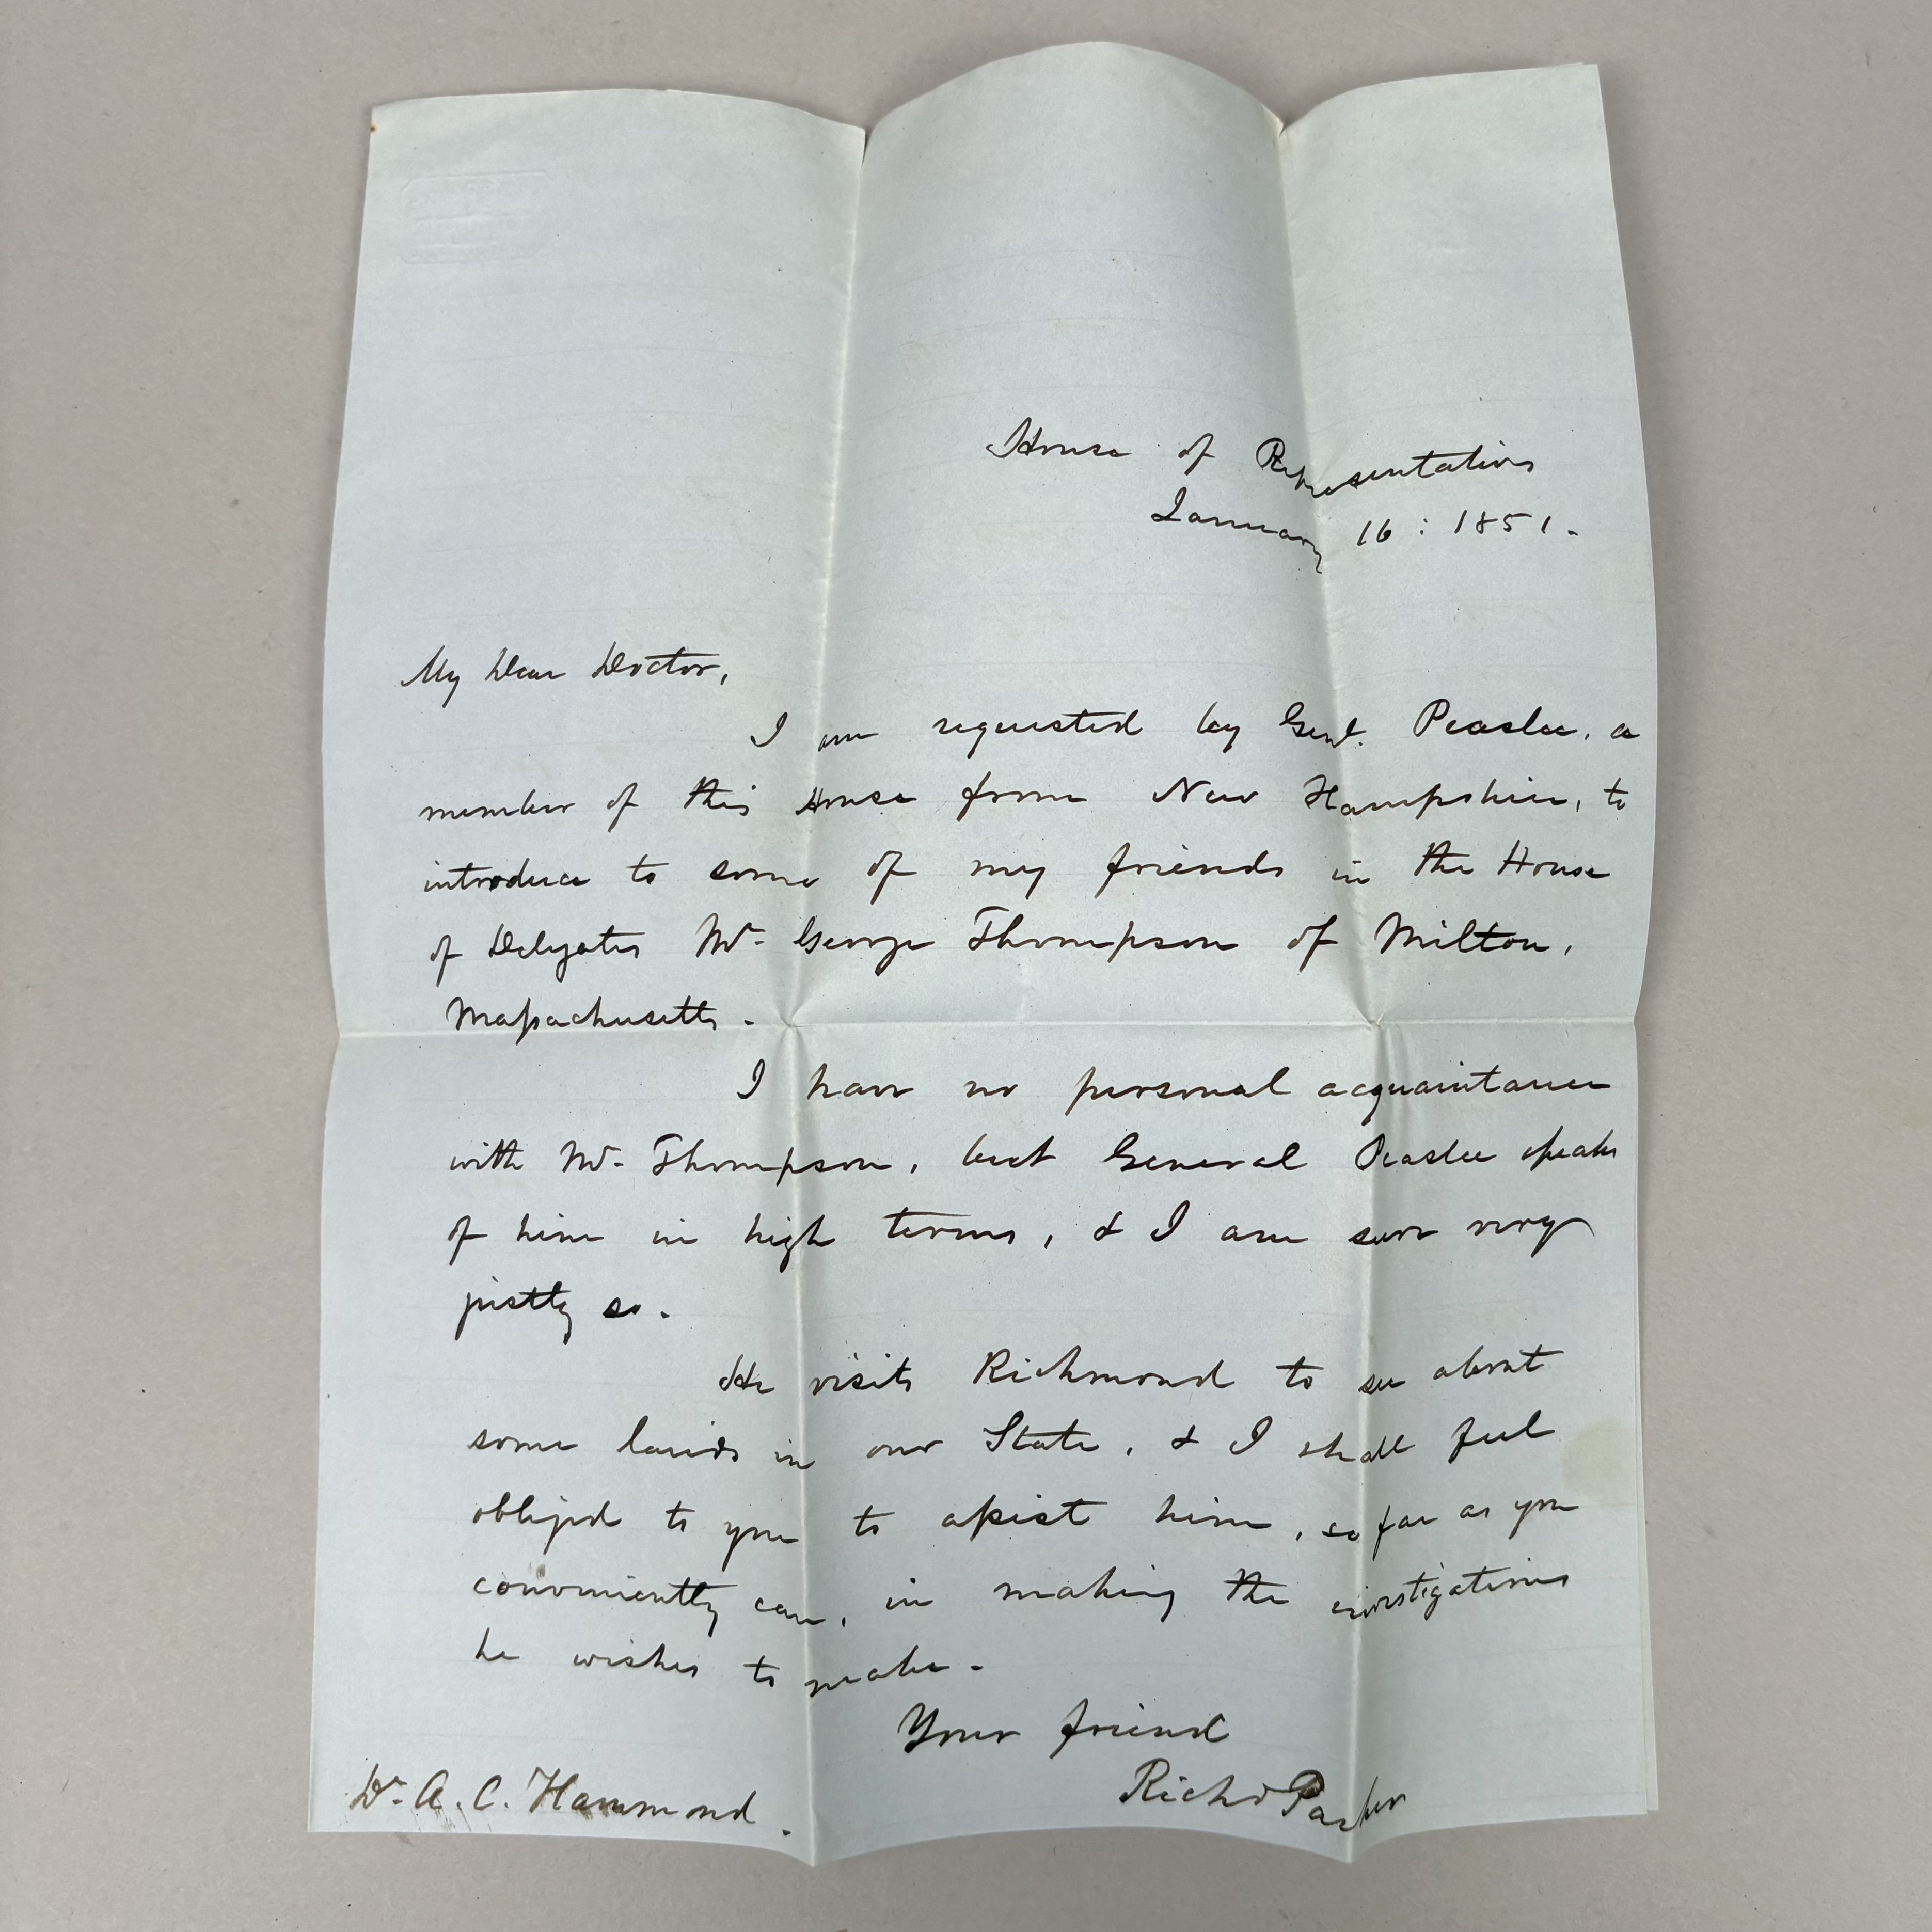 House of Representatives
January 16 : 1851.
My Dear Doctor,
I am requested by Genl. Peaslee, a
member of this House from New Hampshire, to
introduce to some of my friends in the House
of Delegates Mr. George Thompson of Milton,
Massachusetts.
I have no personal acquaintance
with Mr. Thompson, but General Peaslee speaks
of him in high terms, & I am sure very
justly so.
He visits Richmond to see about
some lands in our State, & I shall feel
obliged to you to assist him, so far as you
conveniently can, in making the investigations
he wishes to make.
Your friend
Richd Parker
Dr. A. C. Hammond.